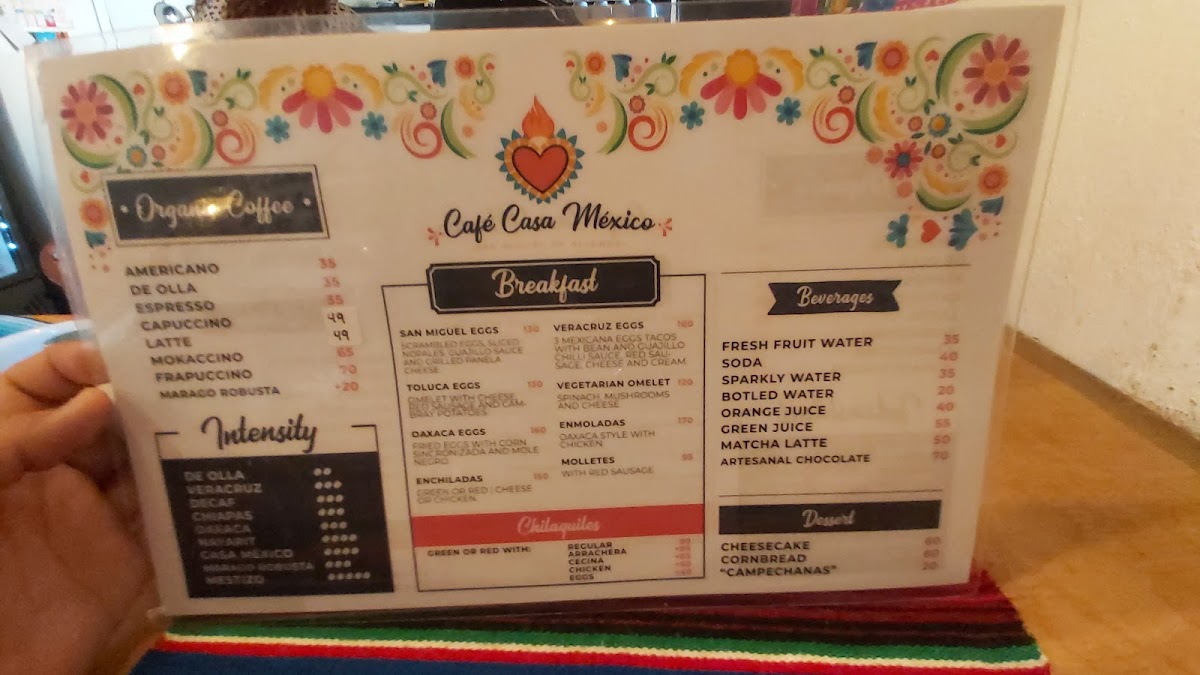 Organic Coffee
AMERICANO 35
DE OLLA 35
ESPRESSO 35
CAPUCCINO 49
LATTE 49
MOKACCINO 65
FRAPUCCINO 70
MARAGO ROBUSTA +20
Intensity
DE OLLA
VERACRUZ
DECAF
CHIAPAS
OAXACA
NAYARIT
CASA MÉXICO
MARAGO ROBUSTA
MESTIZO
Café Casa México
Breakfast
SAN MIGUEL EGGS 130
SCRAMBLED EGGS, SLICED
NOPALES, GUAJILLO SAUCE
AND GRILLED PANELA
CHEESE
TOLUCA EGGS 130
OMELET WITH CHEESE,
RED SAUSAGE AND CAM-
BRAY POTATOES
OAXACA EGGS 160
FRIED EGGS WITH CORN
SINCRONIZADA AND MOLE
NEGRO
ENCHILADAS 150
GREEN OR RED | CHEESE
OR CHICKEN
VERACRUZ EGGS 160
3 MEXICANA EGGS TACOS
WITH BEAN AND GUAJILLO
CHILLI SAUCE, RED SAU-
SAGE, CHEESE AND CREAM
VEGETARIAN OMELET 120
SPINACH, MUSHROOMS
AND CHEESE
ENMOLADAS 170
OAXACA STYLE WITH
CHICKEN
MOLLETES
WITH RED SAUSAGE
Chilaquiles
GREEN OR RED WITH:
REGULAR
ARRACHERA
CECINA
CHICKEN
EGGS
Beverages
FRESH FRUIT WATER 35
SODA 40
SPARKLY WATER 35
BOTLED WATER 20
ORANGE JUICE 40
GREEN JUICE 55
MATCHA LATTE 50
ARTESANAL CHOCOLATE 70
Dessert
CHEESECAKE 60
CORNBREAD 60
"CAMPECHANAS" 20